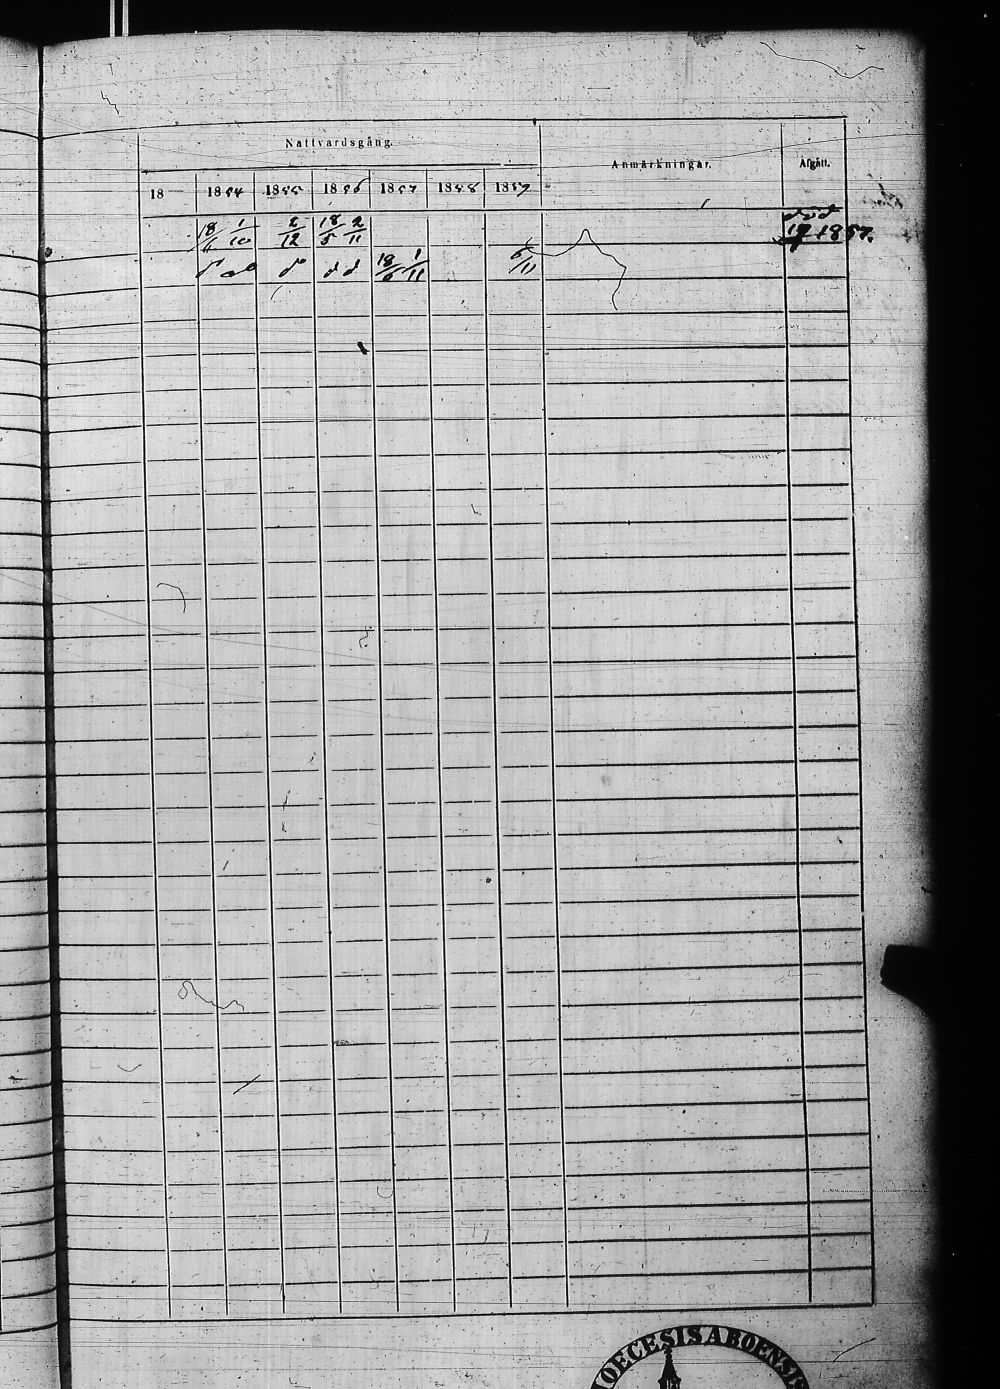 Nattvardsgång. Anmärkningar. Afgått.
18 1854 1855 1856 1857 1858 1859
18/6 1/10 2/12 18/5 2/11 död 1857.
18/6 1/11 6/11
DIOECESIS ABOENSIS